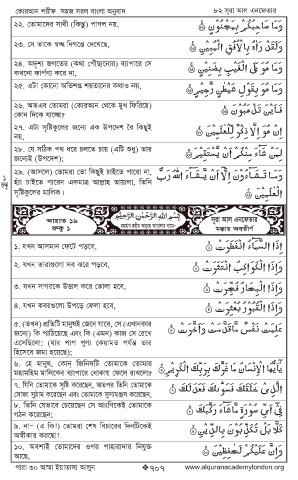 কোরআন শরীফ সহজ সরল বাংলা অনুবাদ
৮২ সূরা আল এনফেতার
২২. তোমাদের সাথী (কিন্তু) পাগল নয়,
وَمَا صَاحِبُكُمْ بِمَجْنُوْنٍ
২৩. সে তাকে স্বচ্ছ দিগন্তে দেখেছে,
وَلَقَدْ رَاٰهُ بِالْاُفُقِ الْمُبِيْنِ
২৪. অদৃশ্য জগতের (কথা পৌঁছানোর) ব্যাপারে সে
কখনো কার্পণ্য করে না,
وَمَا هُوَ عَلَى الْغَيْبِ بِضَنِيْنٍ
২৫. এটা কোনো অভিশপ্ত শয়তানের কথাও নয়,
وَمَا هُوَ بِقَوْلِ شَيْطٰنٍ رَّجِيْمٍ
২৬. অতএব তোমরা (কোরআন থেকে মুখ ফিরিয়ে)
কোন দিকে যাচ্ছো?
فَاَيْنَ تَذْهَبُوْنَ
২৭. এটা সৃষ্টিকুলের জন্যে এক উপদেশ বৈ কিছুই
নয়,
اِنْ هُوَ اِلَّا ذِكْرٌ لِّلْعٰلَمِيْنَ
২৮. যে সঠিক পথ ধরে চলতে চায় (এটি শুধু) তার
জন্যেই (উপদেশ);
لِمَنْ شَآءَ مِنْكُمْ اَنْ يَّسْتَقِيْمَ
২৯. (আসলে) তোমরা তো কিছুই চাইতে পারো না,
হাঁ চাইতে পারেন একমাত্র আল্লাহ তায়ালা, তিনি
সৃষ্টিকুলের মালিক।
وَمَا تَشَآءُوْنَ اِلَّآ اَنْ يَّشَآءَ اللّٰهُ رَبُّ
الْعٰلَمِيْنَ
রুকু ১
আয়াত ১৯
রুকু ১
بِسْمِ اللّٰهِ الرَّحْمٰنِ الرَّحِيْمِ
রহমান রহীম আল্লাহ তায়ালার নামে-
সূরা আল এনফেতার
মক্কায় অবতীর্ণ
১. যখন আসমান ফেটে পড়বে,
اِذَا السَّمَآءُ انْفَطَرَتْ
২. যখন তারাগুলো সব ঝরে পড়বে,
وَاِذَا الْكَوَاكِبُ انْتَثَرَتْ
৩. যখন সাগরকে উত্তাল করে তোলা হবে,
وَاِذَا الْبِحَارُ فُجِّرَتْ
৪. যখন কবরগুলো উপড়ে ফেলা হবে,
وَاِذَا الْقُبُوْرُ بُعْثِرَتْ
৫. (তখন) প্রতিটি মানুষই জেনে যাবে, সে (এখানকার
জন্যে) কি পাঠিয়েছে এবং কি (এমন) কাজ সে রেখে
এসেছিলো; (যার পাপ পুণ্য কেয়ামত পর্যন্ত তার
হিসেবে জমা হয়েছে);
عَلِمَتْ نَفْسٌ مَّا قَدَّمَتْ وَاَخَّرَتْ
৬. হে মানুষ, কোন জিনিসটি তোমাকে তোমার
মহামহিম মালিকের ব্যাপারে ধোকায় ফেলে রাখলো?
يٰٓاَيُّهَا الْاِنْسَانُ مَا غَرَّكَ بِرَبِّكَ الْكَرِيْمِ
৭. যিনি তোমাকে সৃষ্টি করেছেন, অতপর তিনি তোমাকে
সোজা সুঠাম করেছেন এবং তোমাকে সুসমঞ্জস করেছেন,
الَّذِيْ خَلَقَكَ فَسَوّٰىكَ فَعَدَلَكَ
৮. তিনি যেভাবে চেয়েছেন সে আংগিকেই তোমাকে
গঠন করেছেন;
فِيْٓ اَيِّ صُوْرَةٍ مَّا شَآءَ رَكَّبَكَ
৯. না- (এ কি!) তোমরা শেষ বিচারের দিনটিকেই
অস্বীকার করছো!
كَلَّا بَلْ تُكَذِّبُوْنَ بِالدِّيْنِ
১০. অবশ্যই তোমাদের ওপর পাহারাদার নিযুক্ত
আছে,
وَاِنَّ عَلَيْكُمْ لَحٰفِظِيْنَ
পারা ৩০ আম্মা ইয়াতাসা আলুন
৭০৭
www.alquranacademylondon.org